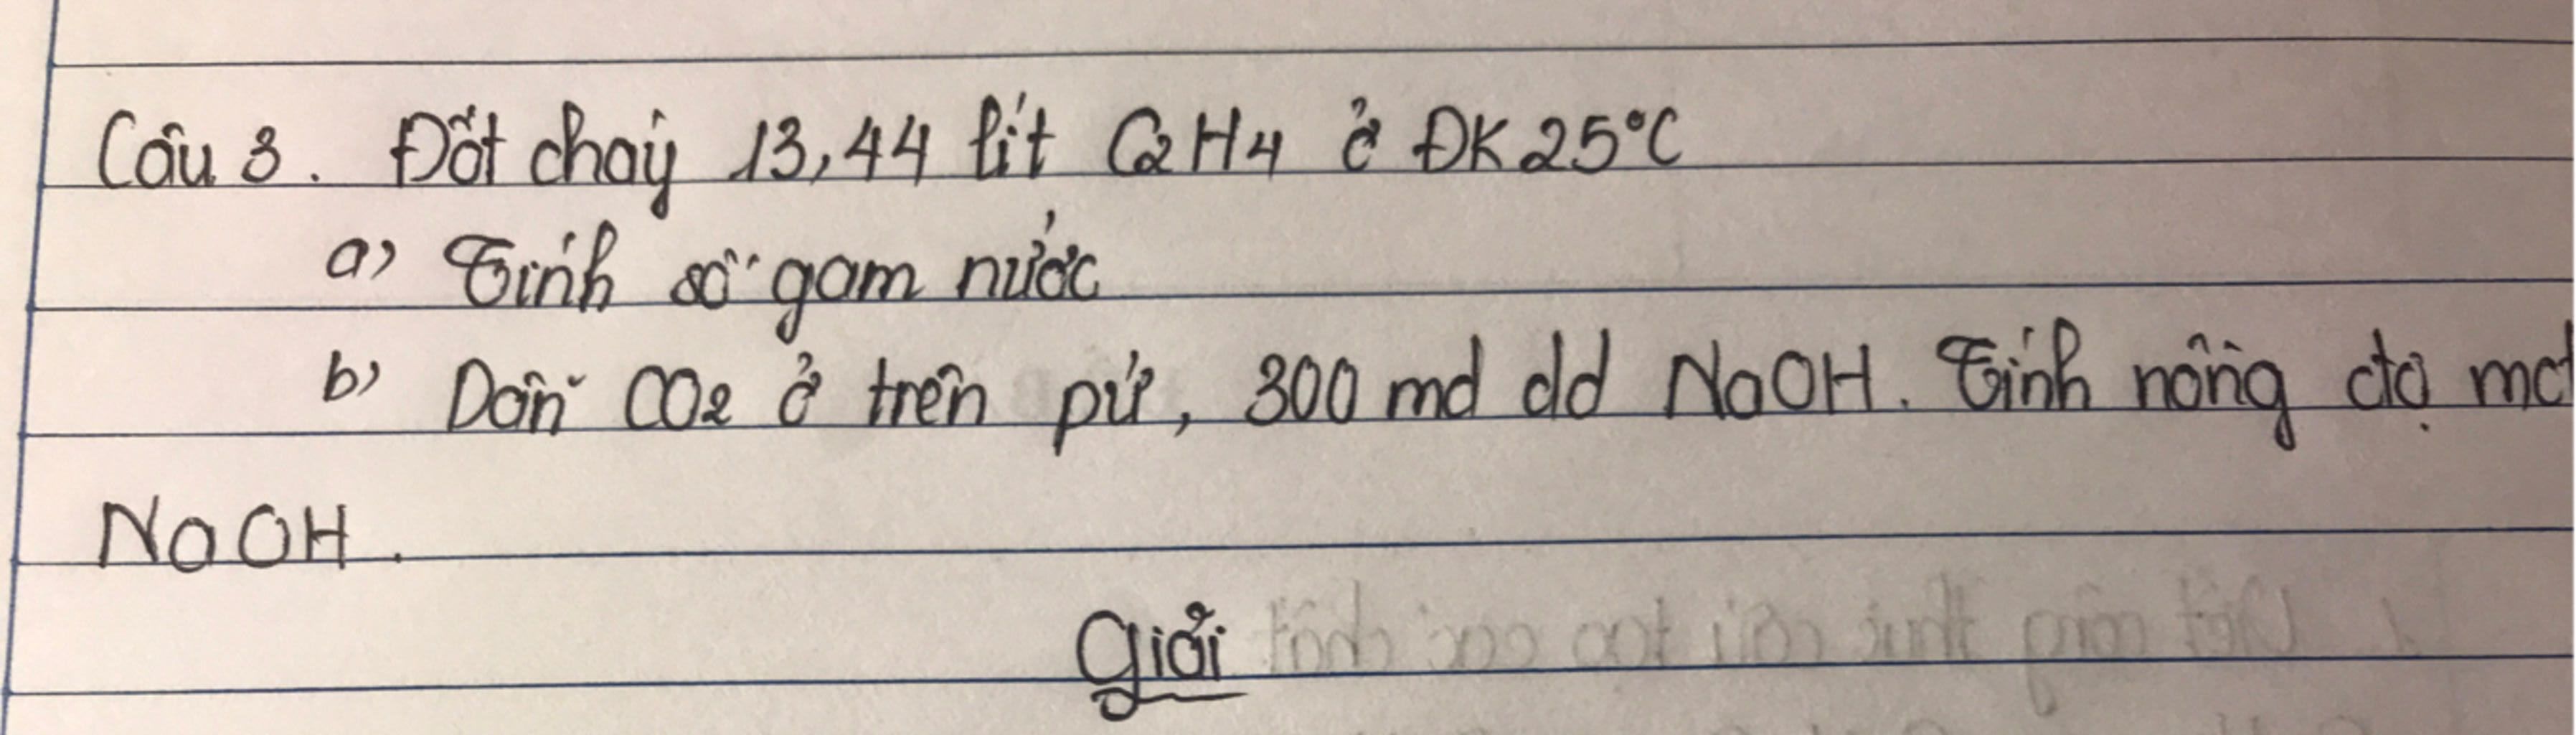 Câu 3. Đốt cháy 13,44 lít C2H4 ở ĐK 25°C
a) Tính số gam nước
b) Dẫn CO2 ở trên pứ, 300 ml dd NaOH. Tính nồng độ mol
NaOH.
Giải